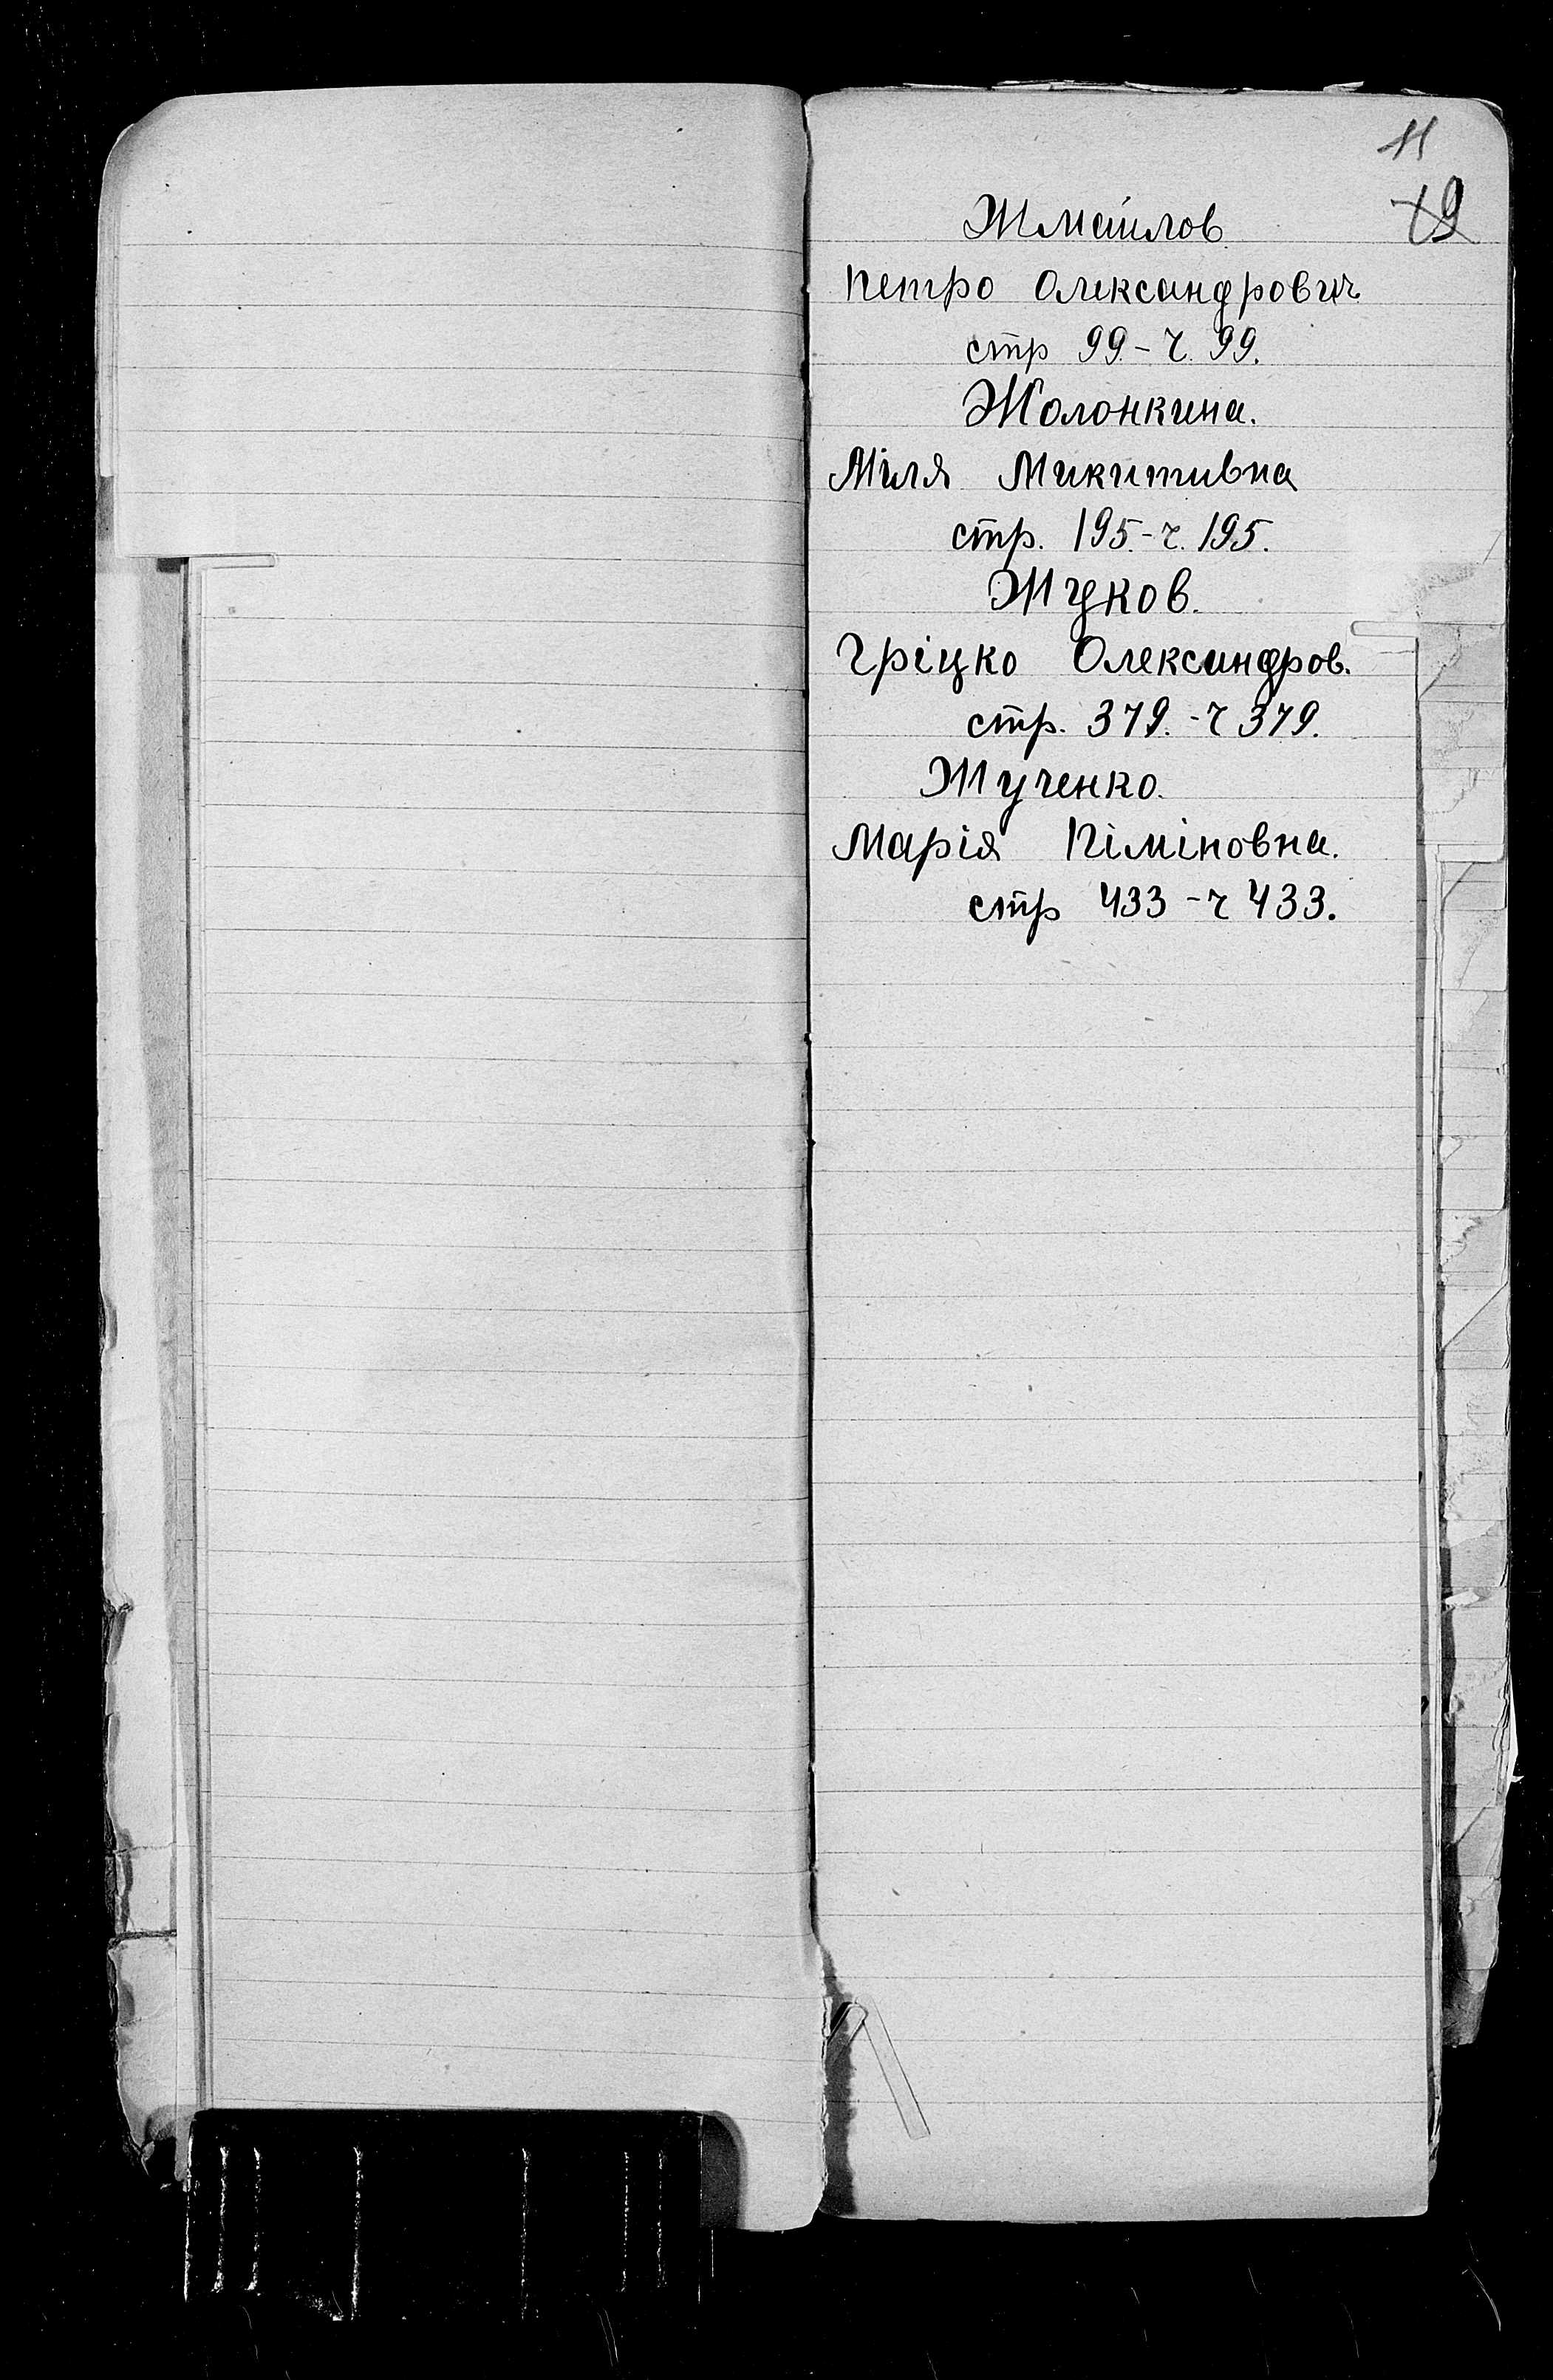 11
19
Жмайлов
Петро Олександрович
стр 99.-ч. 99.
Жолонкина.
Міля Микитивна
стр. 195.-ч. 195.
Жуков.
Гріцко Олександров.
стр. 379.-ч 379.
Жученко.
Марія Піміновна.
стр 433-ч 433.